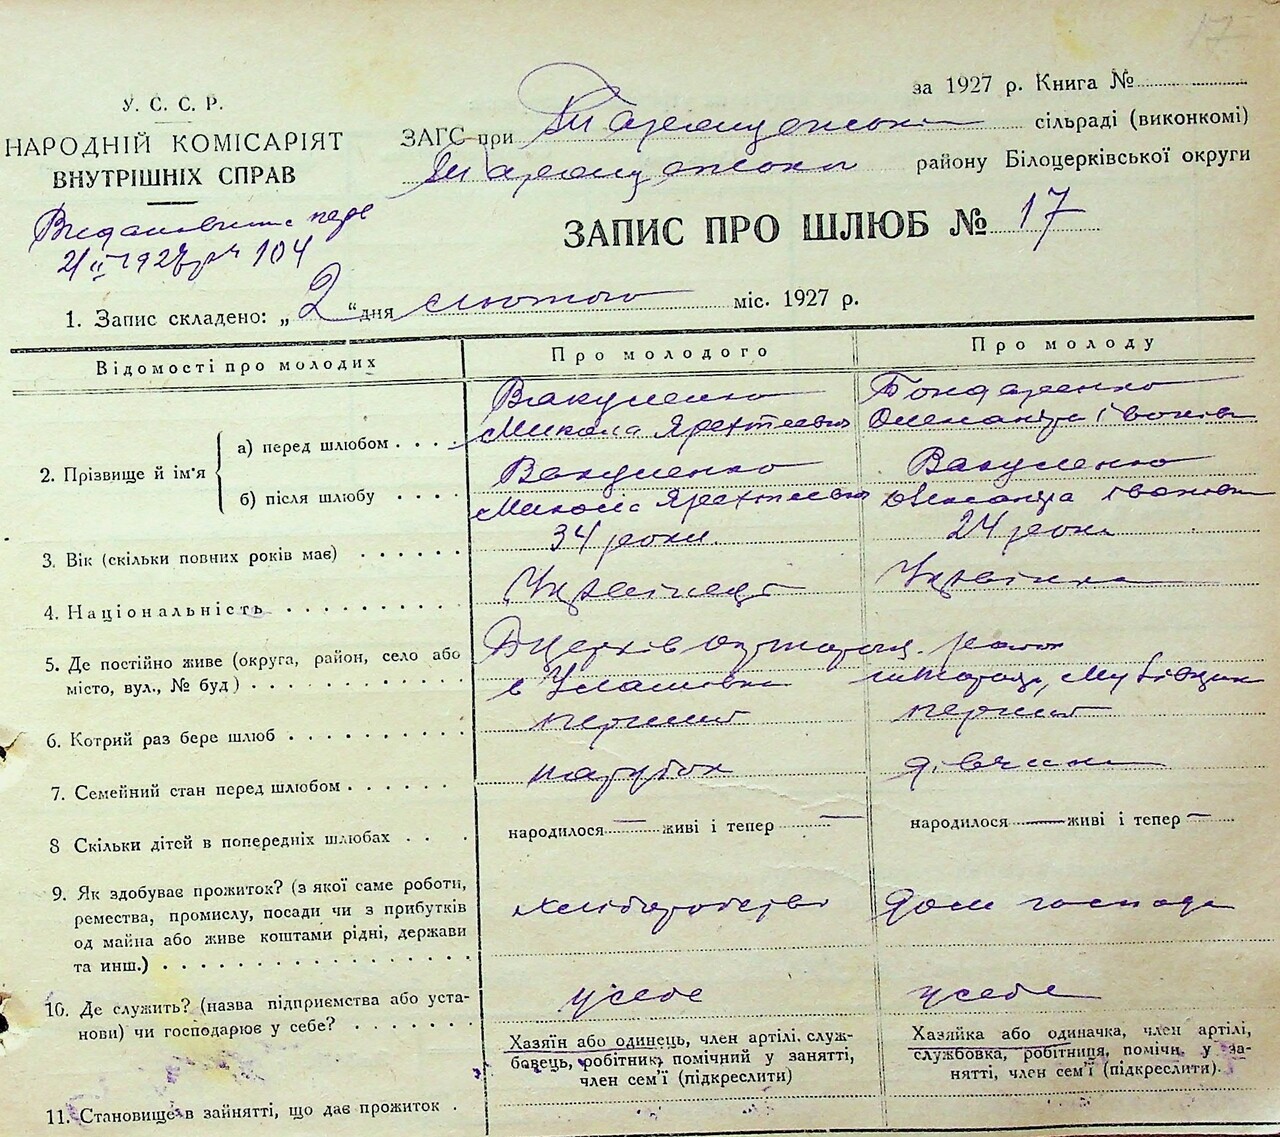 17
У. С. С. Р.
НАРОДНІЙ КОМІСАРІЯТ
ВНУТРІШНІХ СПРАВ
за 1927 р. Книга №
ЗАГС при Таращанськ сільраді (виконкомі)
Таращансько району Білоцерківської округи
ЗАПИС ПРО ШЛЮБ № 17
21/II 1927 р № 104
1. Запис складено: „2“ дня лютого міс. 1927 р.
Відомості про молодих
Про молодого
Про молоду
2. Прізвище й ім'я
а) перед шлюбом
Вакуленко
Микола
Бондаренко
Олександра Івановн
б) після шлюбу
Вакуленко
Микола
Вакуленко
Олександра Івановн
3. Вік (скільки повних років має)
34 роки.
24 роки
4. Національність
Українець
Українка
5. Де постійно живе (округа, район, село або
місто, вул., № буд)
Б Церків округ Таращ. район
с Улашівка
м Тараща,
6. Котрий раз бере шлюб
перший
перший
7. Семейний стан перед шлюбом
парубок
дівчина
8 Скільки дітей в попередніх шлюбах
народилося — живі і тепер —
народилося — живі і тепер —
9. Як здобуває прожиток? (з якої саме роботи,
ремества, промислу, посади чи з прибутків
од майна або живе коштами рідні, держави
та инш.)
хліборобство
дом господ
10. Де служить? (назва підприємства або уста-
нови) чи господарює у себе?
у себе
у себе
11. Становище в зайнятті, що дає прожиток
Хазяїн або одинець, член артілі, служ-
бовець, робітник, помічний у занятті,
член сем'ї (підкреслити)
Хазяйка або одиначка, член артілі,
службовка, робітниця, помічн. у за-
нятті, член сем'ї (підкреслити).